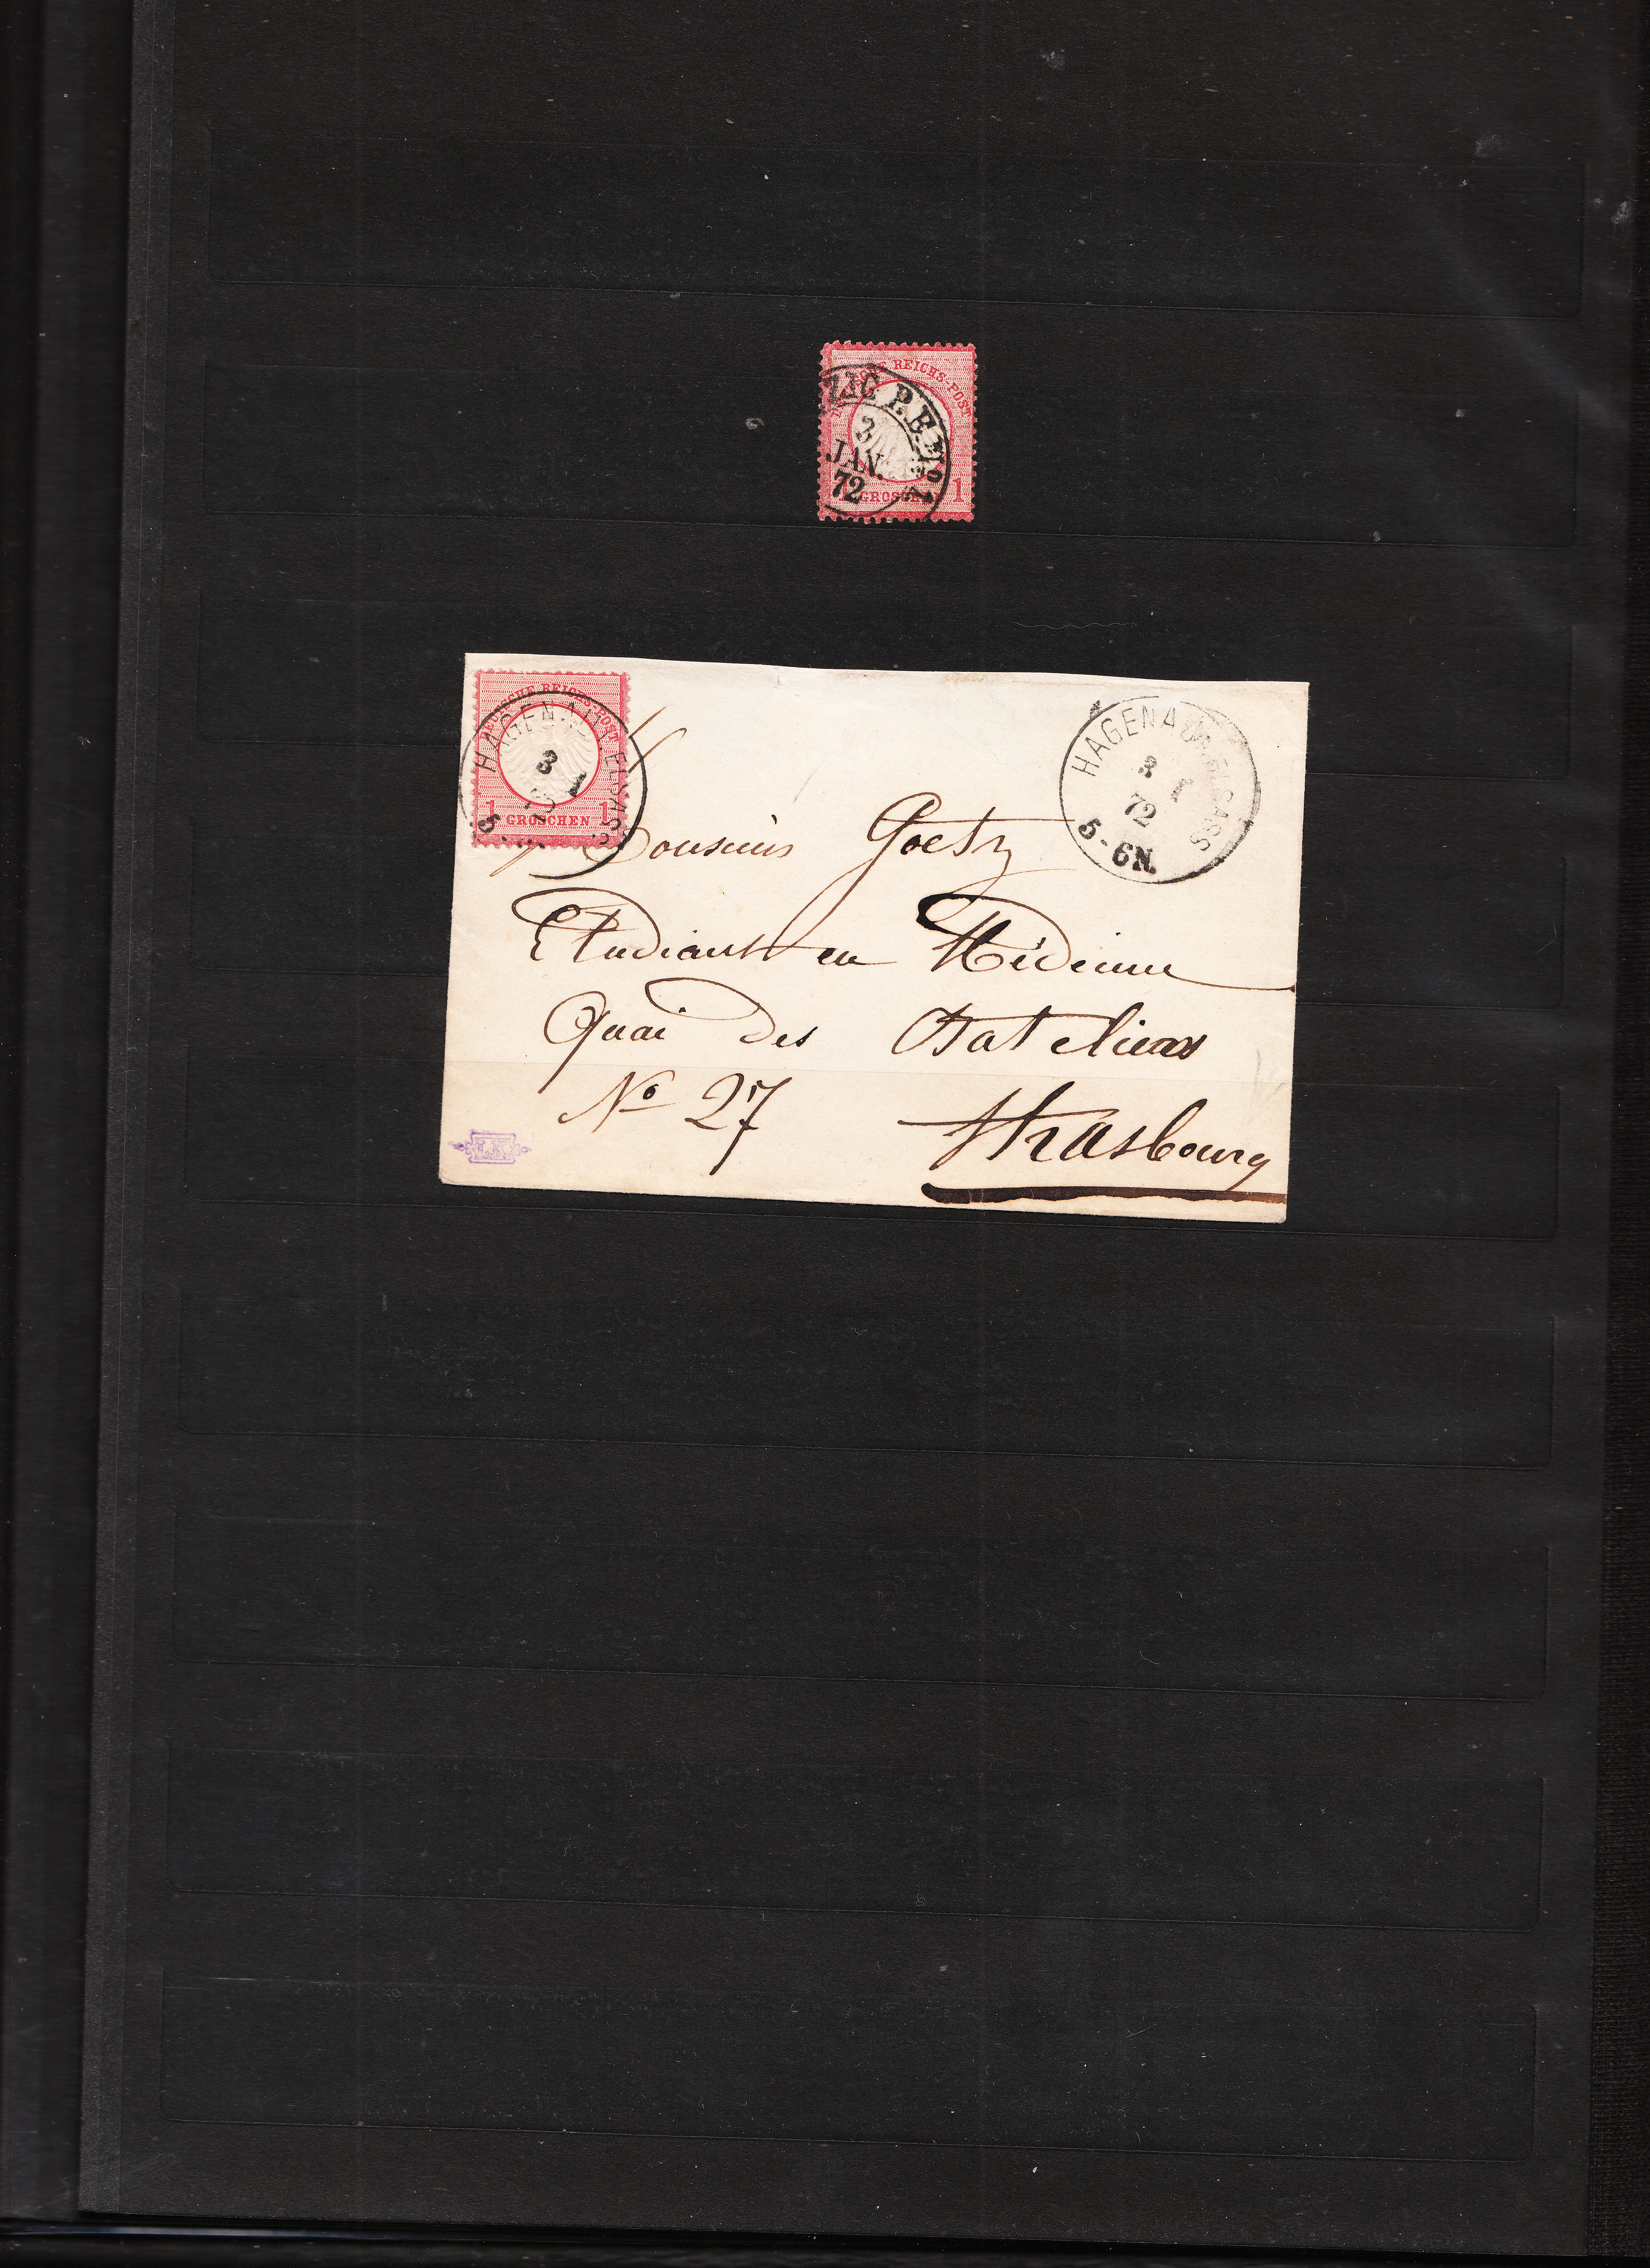 REICHS-POST
ZIG P.E. No 1
3
JAN.
72
1
DEUTSCHE REICHS-POST
1 GROSCHEN 1
HAGENAU I. ELSASS
3 1
72
5
HAGENAU I. ELSASS
3 1
72
5-6N.
Monsieur Goetz
Etudiant en Médecine
Quai des Bateliers
No 27
Strasbourg